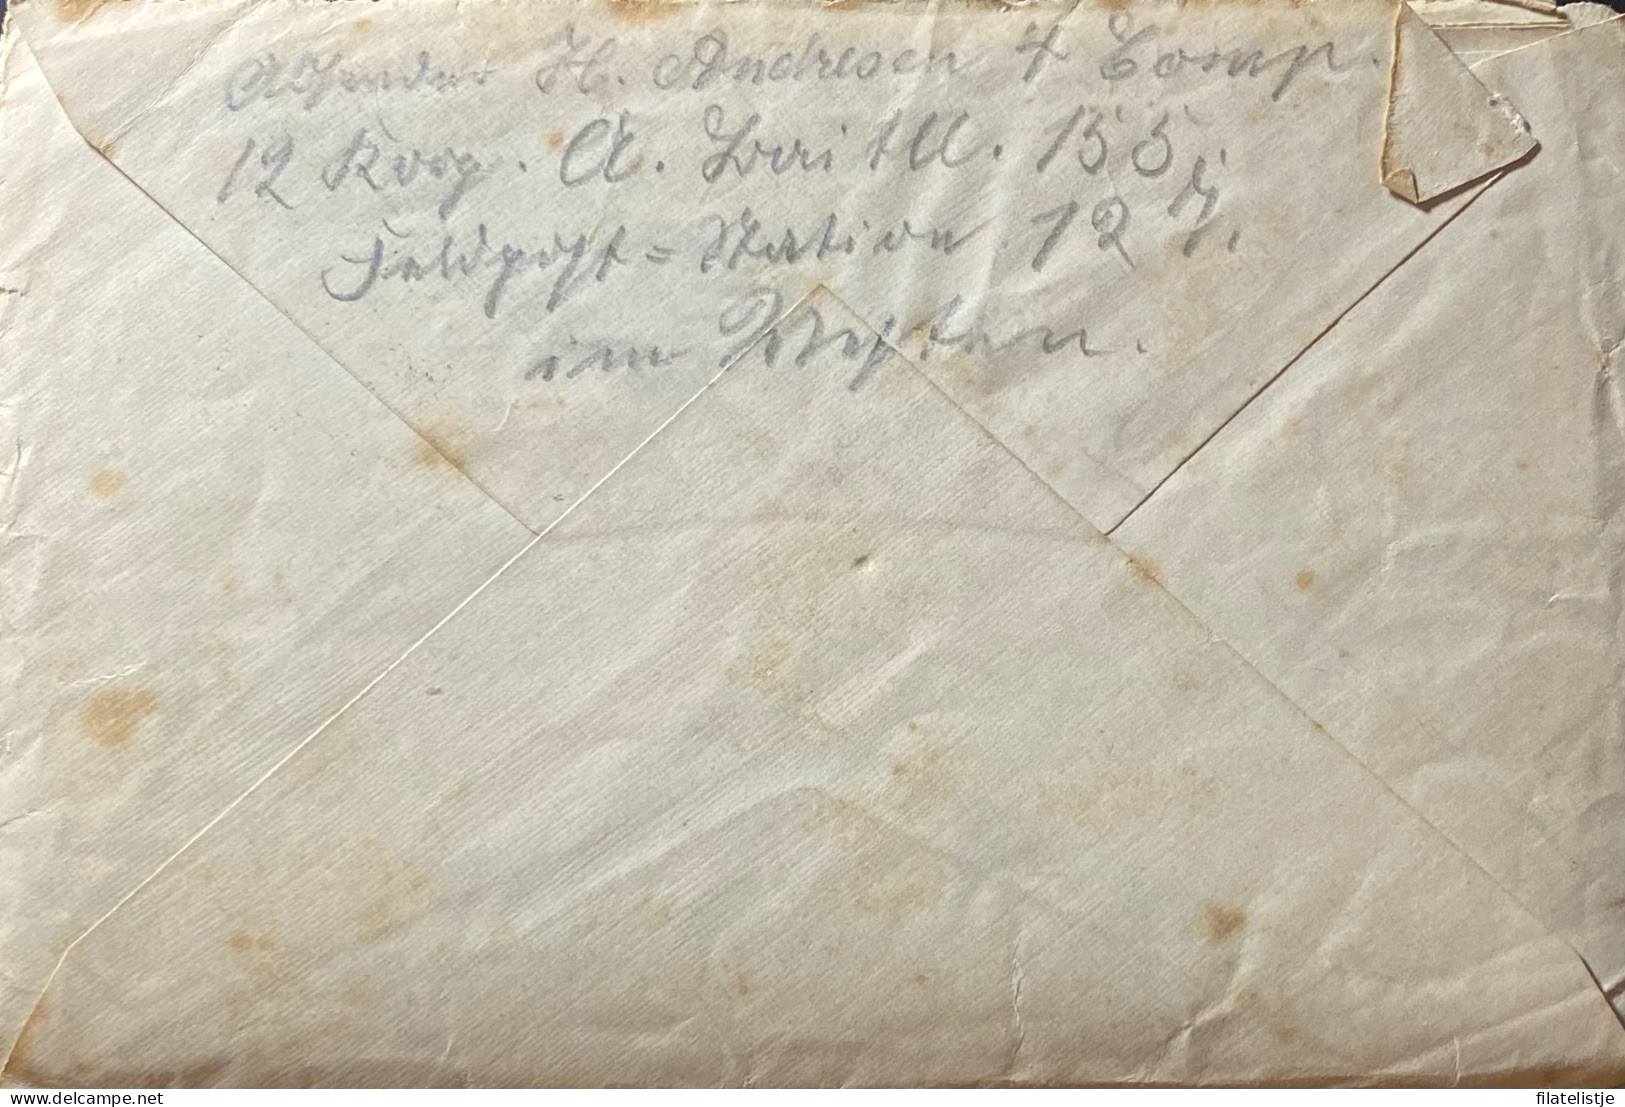 Absender H. Andresen 4 Comp.
12 Korp. A. Batill. 155
Feldpost=Station 12
im Westen.
filatelistje
delcampe.net